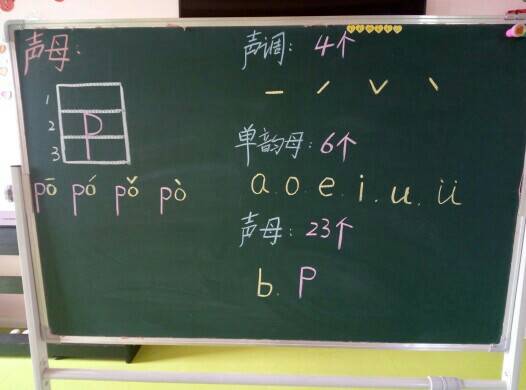 声母：
1
2 p
3
pō pó pǒ pò
声调：4个
ˉ ˊ ˇ ˋ
单韵母：6个
a. o. e. i. u. ü
声母：23个
b. p